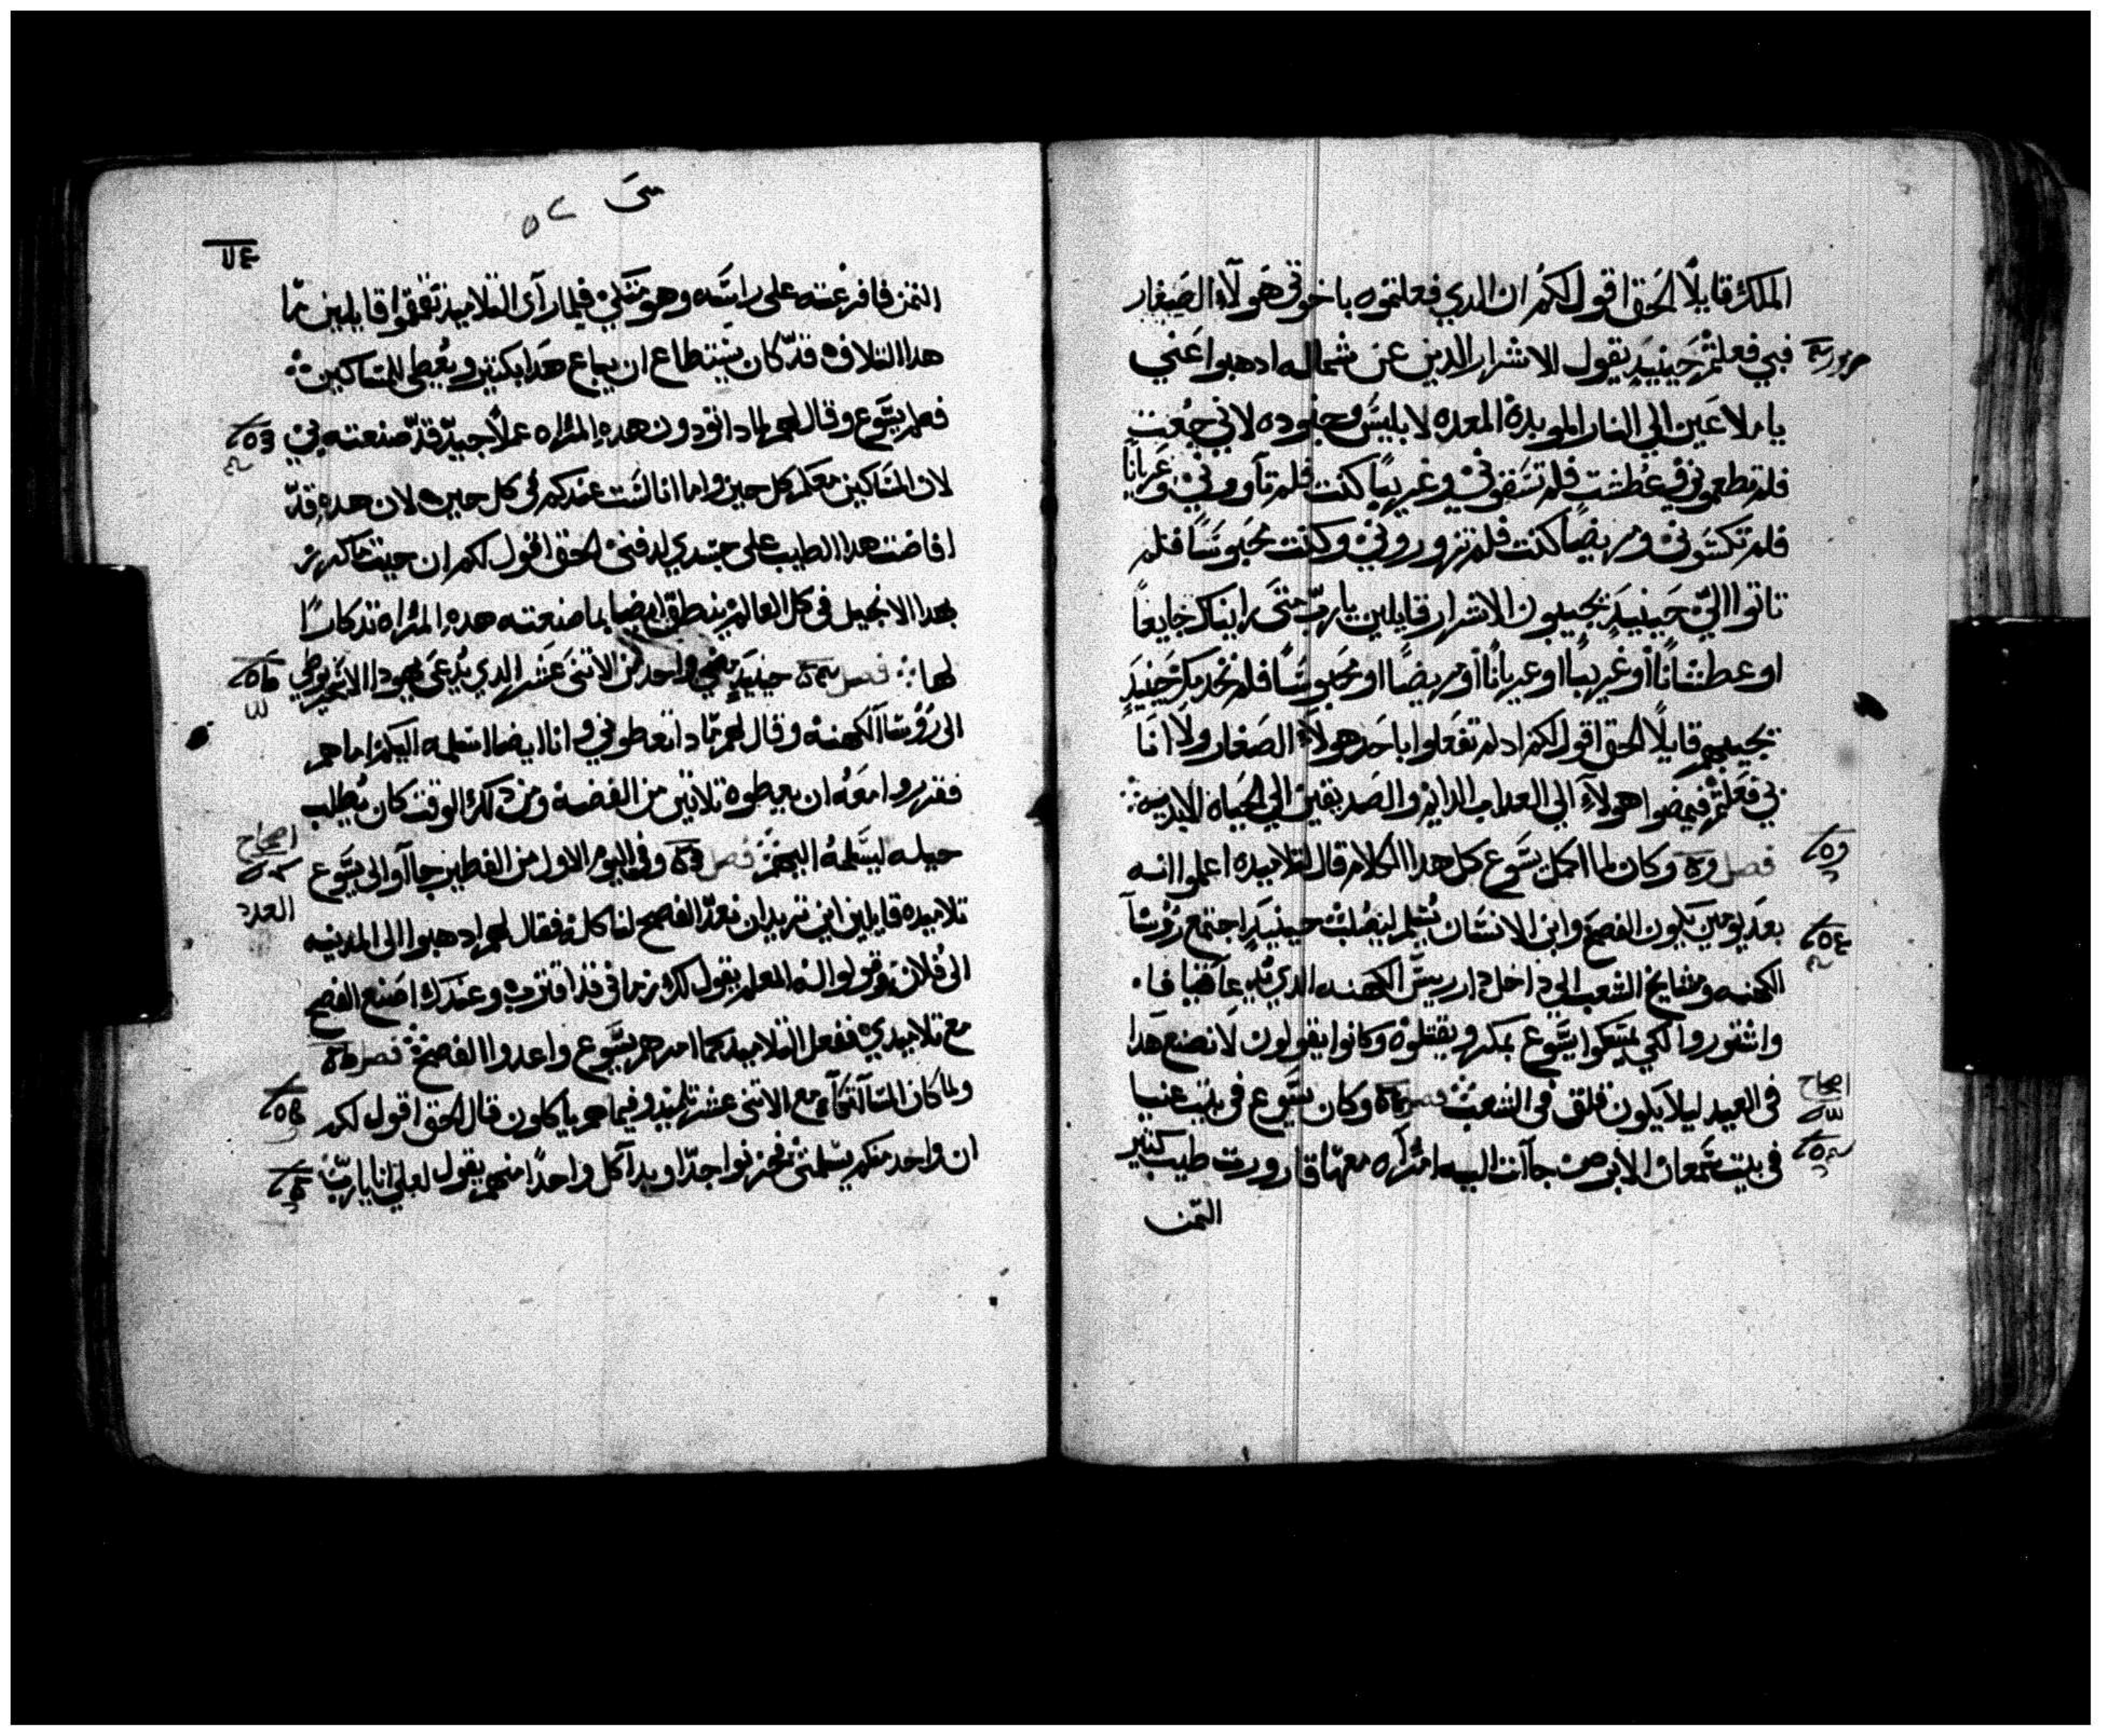 الملك قايلًا الحق اقول لكم ان الدي فعلتموه باخوتي هولآء الصغار
فبي فعلتم حينيدٍ يقول الاشرار الدين عن شماله ادهبوا عني
يا ملاعين الي النار الموبدة المعده لابليس وجنوده لاني جعت
فلم تطعموني وعطشت فلم تسقوني وغريبًا كنت فلم تآووني وعريانًا
فلم تكسوني ومريضًا كنت فلم تزوروني وكنت محبوسًا فلم
تاتوا اليّ حينيدٍ يجيبون الاشرار قايلين يا ربّ متى رايناك جايعًا
او عطشانًا او غريبًا او عريانًا او مريضًا او محبوسًا فلم نخدمك حينيدٍ
يجيبهم قايلًا الحق اقول لكم اد لم تفعلوا باحد هولآء الصغار ولا انا
بي فعلتم فيمضوا هولآء الي العداب الدايم والصديقين الي الحياه الابديه
فصل وكان لما اكمل يسوع كل هدا الكلام قال لتلاميده اعلموا انه
بعد يومين يكون الفصح وابن الانسان يُسلم ليصلب حينيدٍ اجتمع رؤسآ
الكهنه ومشايخ الشعب الي داخل دار رييس الكهنه الدي يُدعا قيافا
واشتوروا لكي يمسكوا يسوع بمكر ويقتلوه وكانوا يقولون لا نصنع هدا
اصحاح
في العيد ليلا يكون قلق في الشعب فصل وكان يسوع في بيت عنيا
في بيت سمعان الابرص جآت اليه امراه معها قارورت طيب كثير
الثمن
متى
الثمن فافرغته على راسه وهو متكي فلما راى التلاميد تقمقموا قايلين لما
هدا التلاف قد كان يستطاع ان يباع هدا بكثير ويعطى للمساكين
فعلم يسوع وقال لهم لمادا تودون هده المراه عملًا جيد قد صنعته بي
لان المساكين معكم كل حين واما انا لست عندكم في كل حين لان هده قد
افاضت هدا الطيب على جسدي لدفني الحق اقول لكم ان حيث ما كرز
بهدا الانجيل في كل العالم ينطق ايضا بما صنعته هده المراه تدكارًا
لها فصل حينيدٍ مضي واحد من الاثنى عشر الدي يُدعى يهودا الاسخريوطي
الى رؤسا الكهنه وقال لهم مادا تعطوني وانا ايضا اسلمه اليكم اما هم
فقرروا معه ان يعطوه تلاتين من الفضه ومن دلك الوقت كان يطلب
اصحاح
حيله ليسلمه اليهم فصل وفي اليوم الاول من الفطير جاآوا الى يسوع
العدد
تلاميده قايلين اين تريد ان نعد الفصح لناكل فقال لهم ادهبوا الى المدينه
الى فلان وقولوا له المعلم يقول لك زماني قد اقترب وعندك اصنع الفصح
مع تلاميدي ففعل التلاميد كما امرهم يسوع واعدوا الفصح فصل
ولما كان المسا اتكآ مع الاثنى عشر تلميد وفيما هم ياكلون قال الحق اقول لكم
ان واحد منكم يسلمني فحزنوا جدًا وبدا كل واحدًا منهم يقول لعلي انا يا ربّ